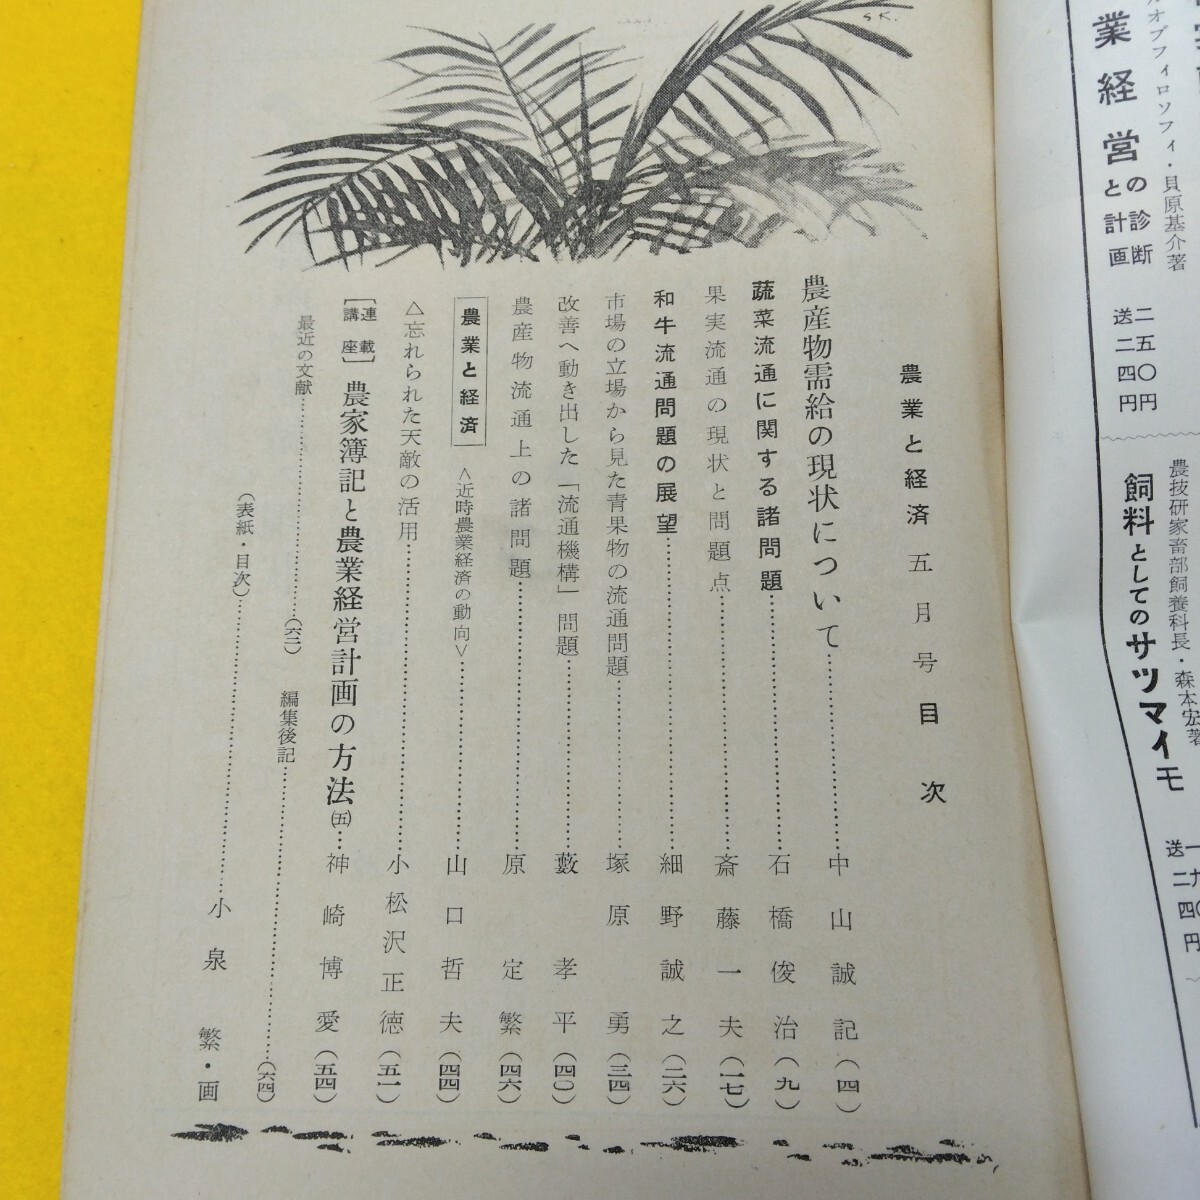 農業と経済 五月号目次
農産物需給の現状について……中山誠記(四)
蔬菜流通に関する諸問題……石橋俊治(九)
果実流通の現状と問題点……斎藤一夫(一七)
和牛流通問題の展望……細野誠之(二六)
市場の立場から見た青果物の流通問題……塚原勇(三四)
改善へ動き出した「流通機構」問題……藪孝平(四〇)
農産物流通上の諸問題……原定繁(四六)
農業と経済 <近時農業経済の動向>……山口哲夫(四四)
△忘れられた天敵の活用……小松沢正徳(五一)
[連載講座] 農家簿記と農業経営計画の方法(五)…神崎博愛(五四)
最近の文献……(六二) 編集後記……(六四)
(表紙・目次)……小泉繁・画
S.K.
オブフィロソフィ・貝原基介著
業経営の診断と計画 二五〇円 送二四円
農技研家畜部飼養科長・森本宏著
飼料としてのサツマイモ